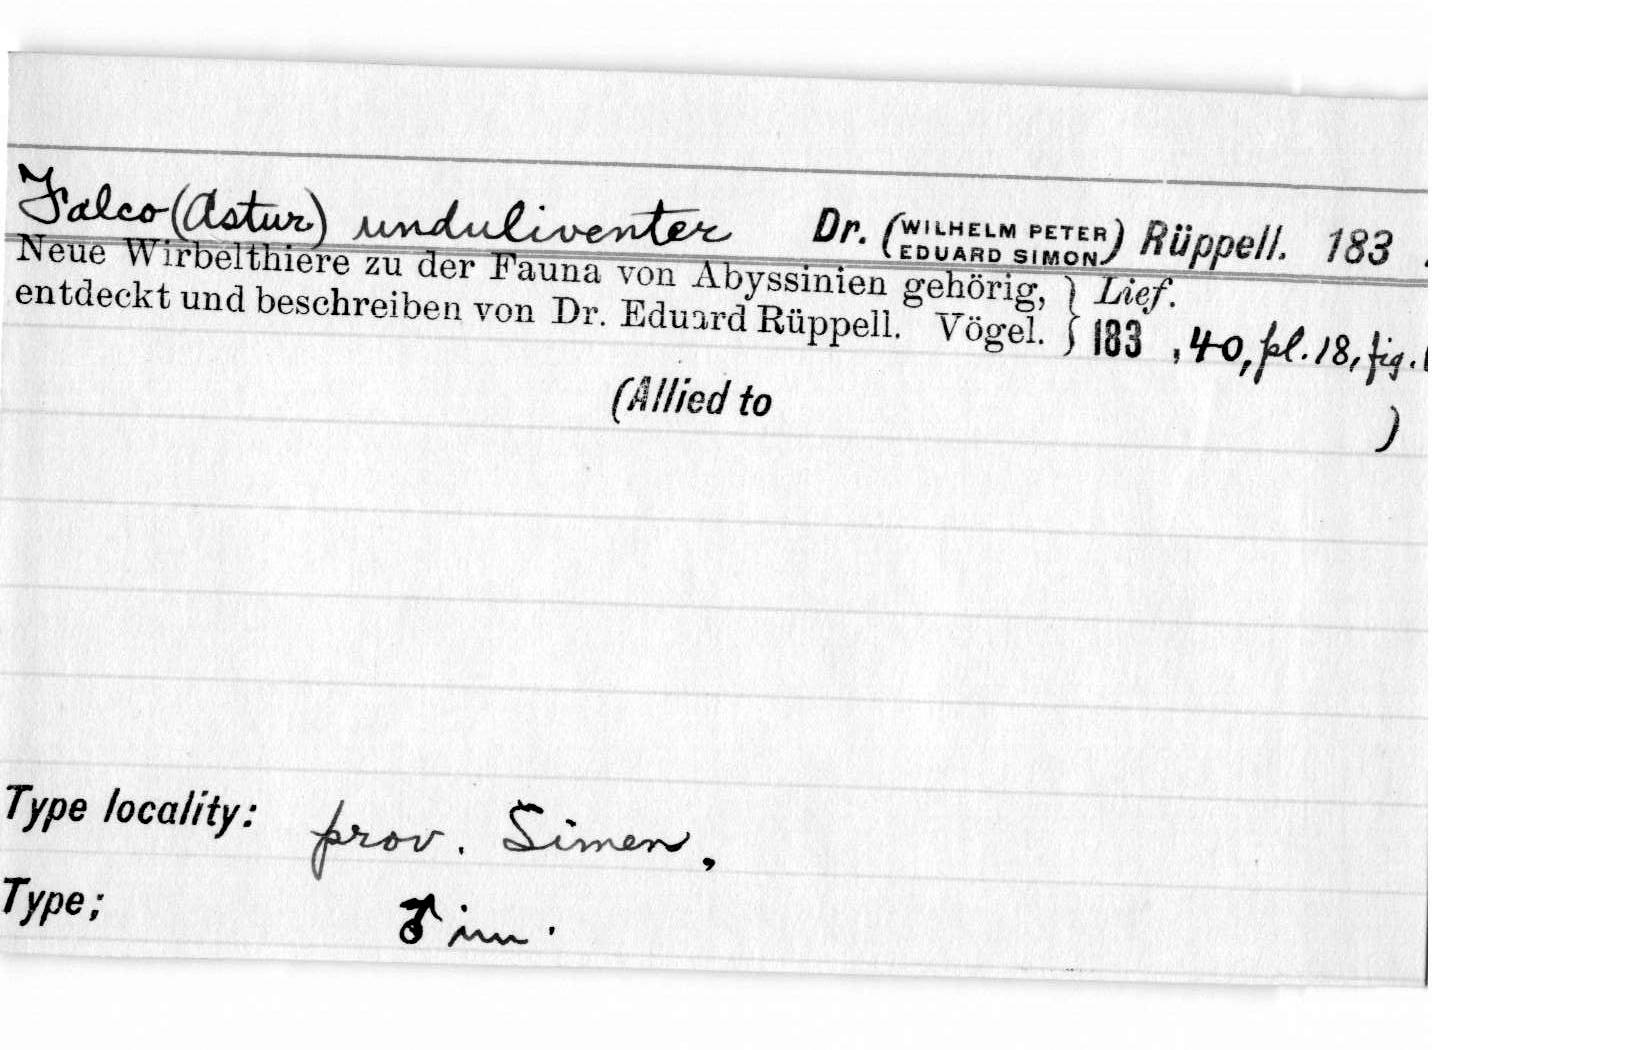 Falco (Astur) unduliventer Dr. (WILHELM PETER EDUARD SIMON) Rüppell. 183 .
Neue Wirbelthiere zu der Fauna von Abyssinien gehörig, } Lief.
entdeckt und beschreiben von Dr. Eduard Rüppell. Vögel. } 183 , 40, pl. 18, fig. 1
(Allied to )
Type locality: prov. Simen,
Type; ♂ im.